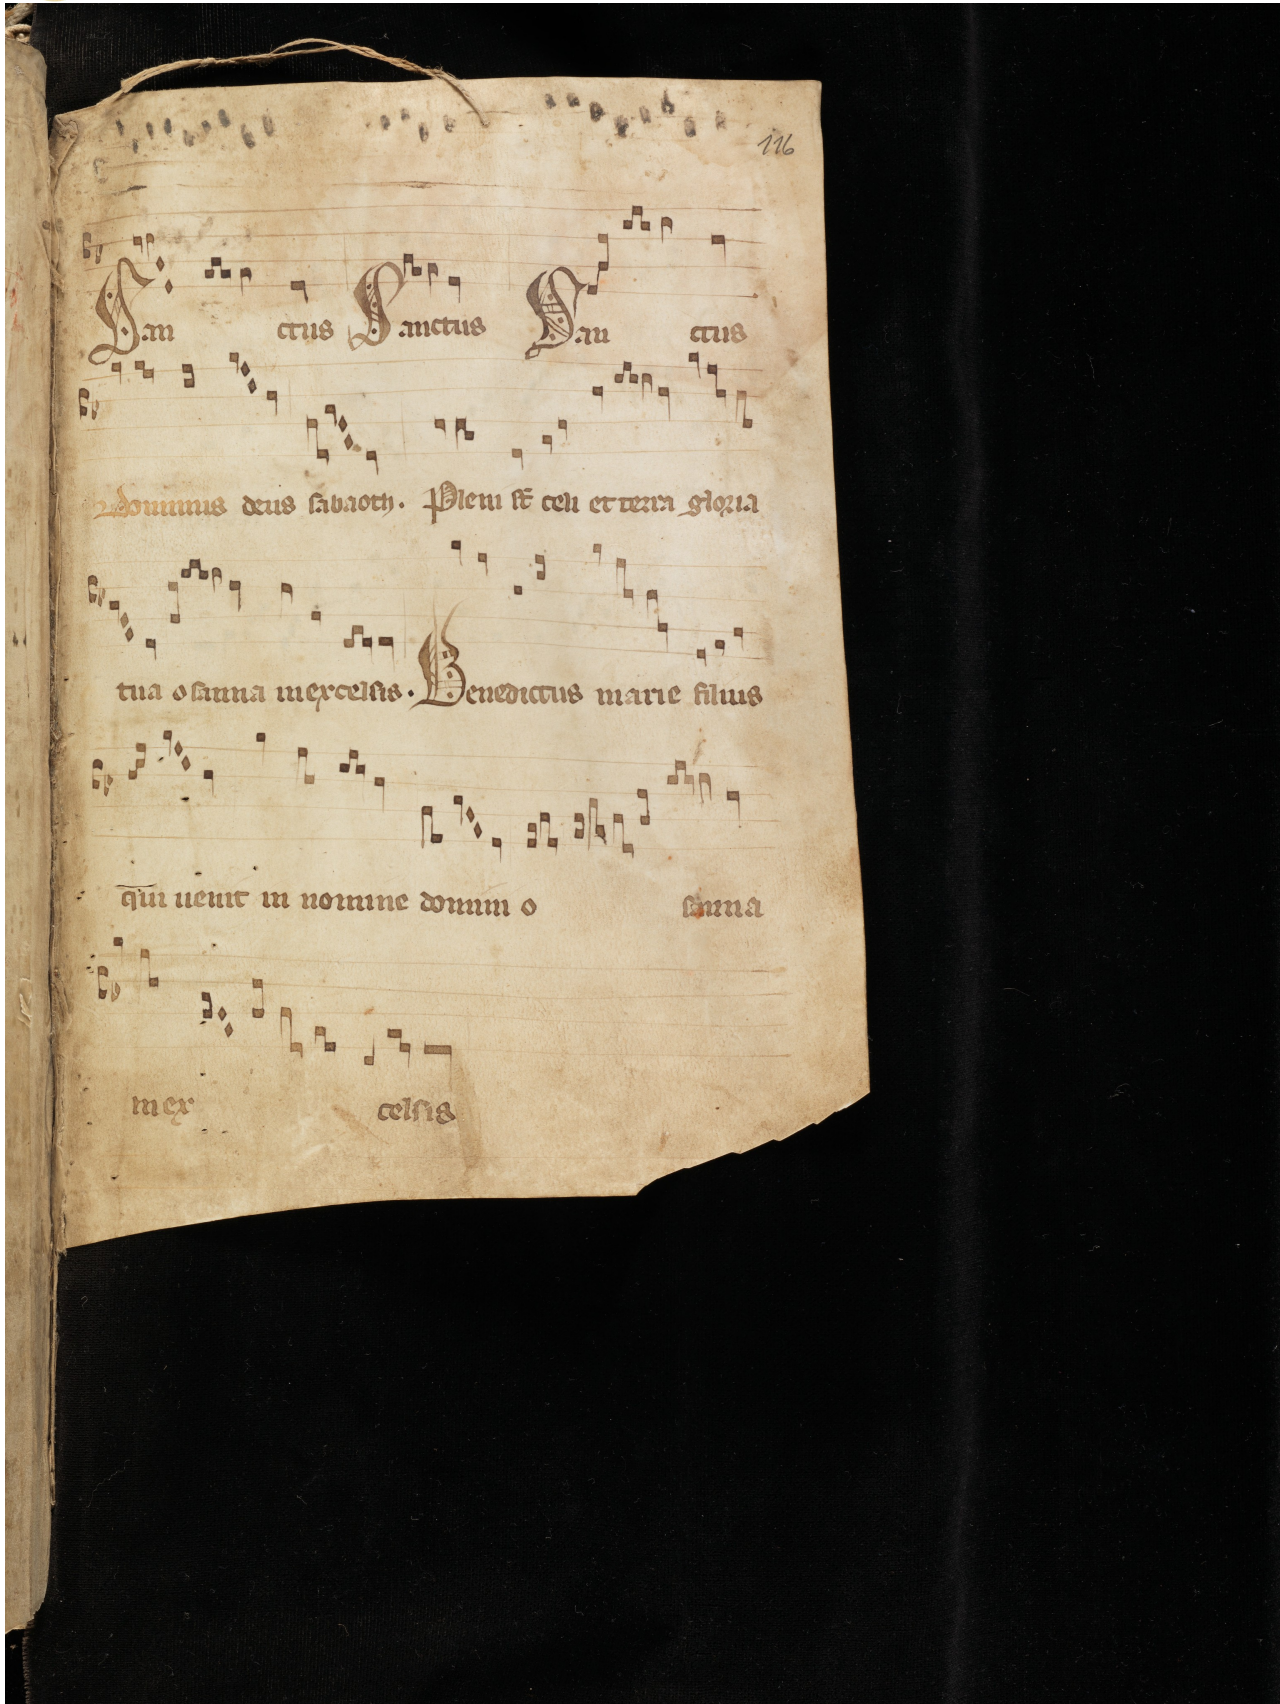 116
San ctus Sanctus San ctus
dominus deus sabaoth. Pleni st̄ celi et terra gloria
tua osanna in excelsis. Benedictus marie filius
qui uenit in nomine domini o sanna
in ex celsis